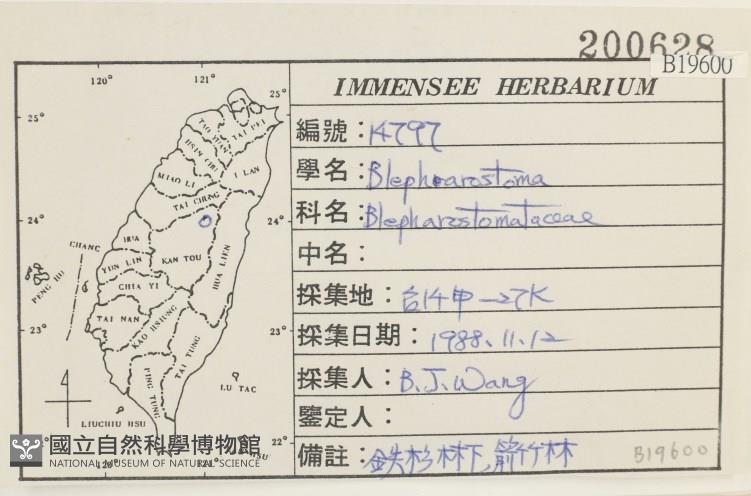 200628
B19600
IMMENSEE HERBARIUM
編號：14797
學名：Blepharostoma
科名：Blepharostomataceae
中名：
採集地：台14甲—27K
採集日期：1988.11.12
採集人：B.J.Wang
鑒定人：
備註：鉄杉林下,箭竹林
B19600
120°
121°
25°
25°
TAO YUAN
TAI PEI
HSIN CHU
I LAN
MIAO LI
TAI CHUNG
24°
24°
CHANG HUA
YUN LIN
KAN TOU
HUA LIEN
PENG HU
CHIA YI
TAI NAN
KAO HSIUNG
23°
23°
TAI TUNG
PING TUNG
LU TAC
LIUCHIU HSU
22°
HSU
120°
121°
國立自然科學博物館
NATIONAL MUSEUM OF NATURAL SCIENCE